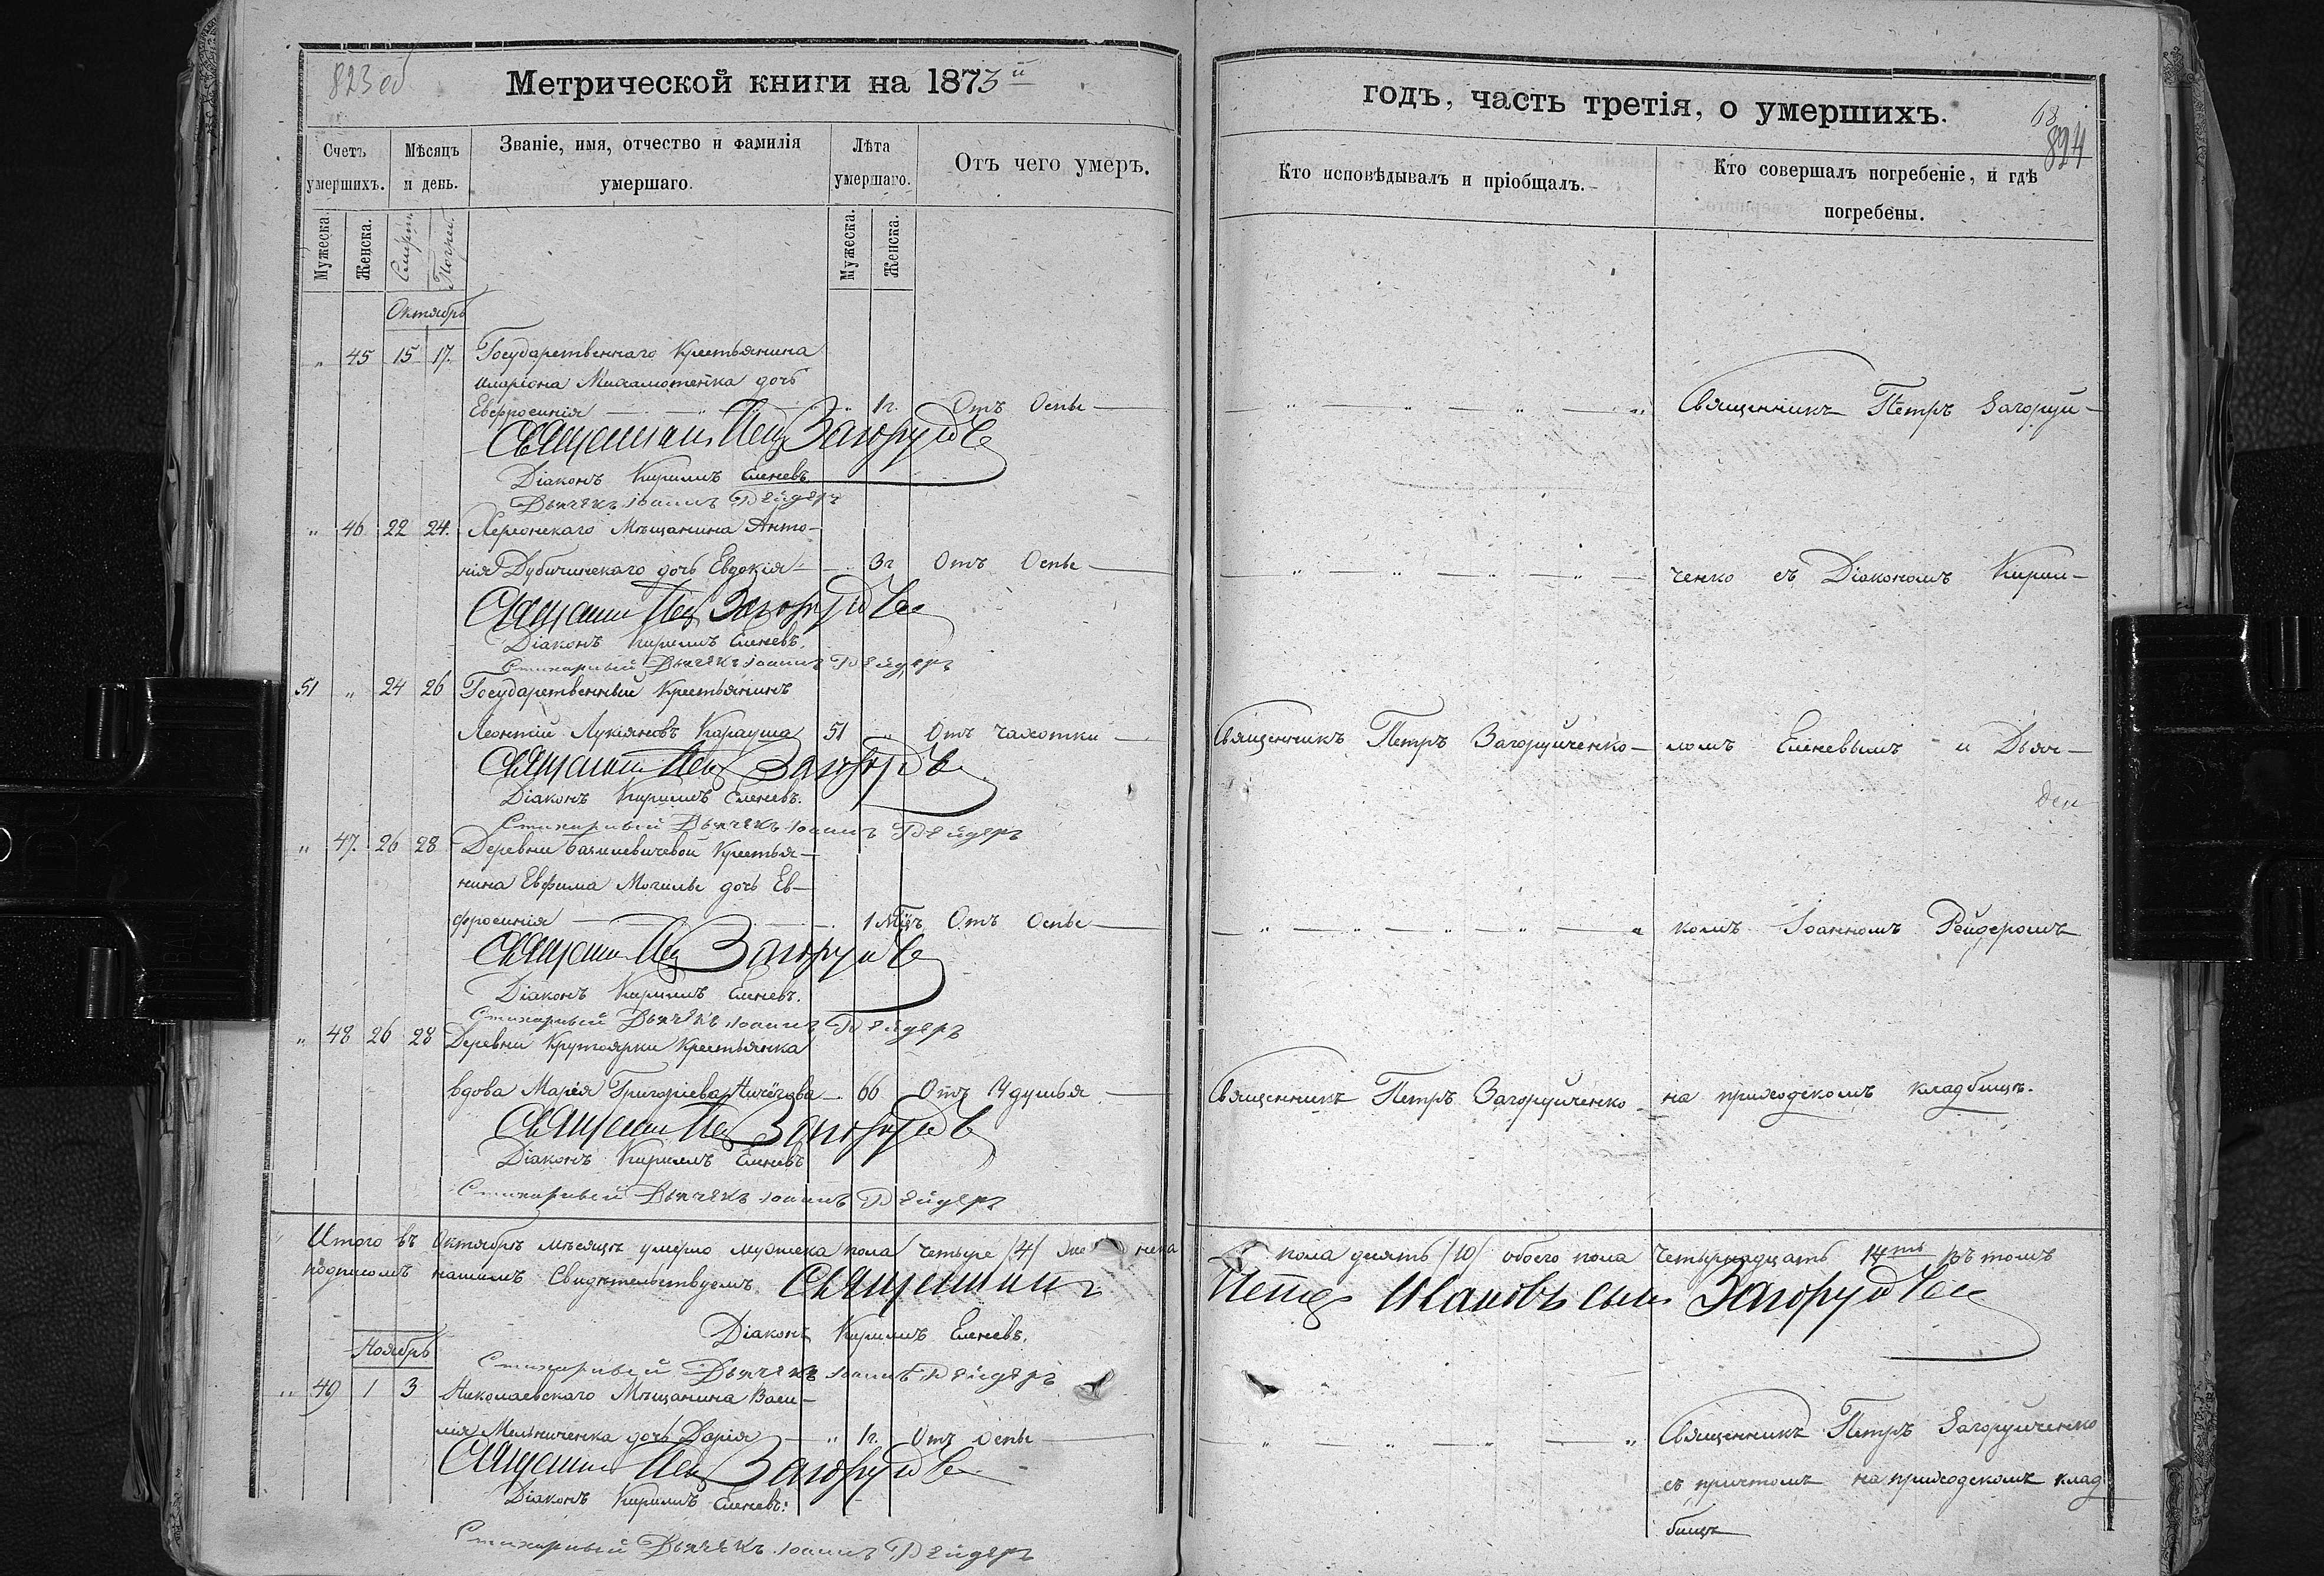 823 об
Метрической книги на 1873 й
Счетъ умершихъ.
Мѣсяцъ и день.
Званіе, имя, отчество и фамилія умершаго.
Лѣта умершаго.
Отъ чего умеръ.
Мужеска.
Женска.
Смерт.
Погреб.
Мужеска.
Женска.
Октябрь
" 45 15 17. Государственнаго Крестьянина
дочь
Евфросинія — " — " 1 г. Отъ Оспы —
Священникъ Петръ Загоруйч
Діаконъ Кириллъ Еленевъ
Дьячекъ Іоаннъ Рейдеръ
" 46 22 24. Херсонскаго Мѣщанина Анто-
нія Дубичинскаго дочь Евдокія — 3 г Отъ Оспы —
Священникъ Петръ Загоруйч
Діаконъ Кириллъ Еленевъ.
Стихарный Дьячекъ Іоаннъ Рейдеръ
51 " 24 26 Государственный Крестьянинъ
Леонтій Лукіяновъ Карауша 51 " Отъ Чахотки —
Священникъ Петръ Загоруйч
Діаконъ Кириллъ Еленевъ.
Стихарный Дьячекъ Іоаннъ Рейдеръ
" 47. 26 28 Деревни Крестья-
нина Евфима Могилы дочь Ев-
фросинія — 1 Мцъ Отъ Оспы —
Священникъ Петръ Загоруйч
Діаконъ Кириллъ Еленевъ.
Стихарный Дьячекъ Іоаннъ Рейдеръ
" 48 26 28 Деревни Крутоярки Крестьянка
вдова Марія Григоріева 66 Отъ Удушья —
Священникъ Петръ Загоруйч
Діаконъ Кириллъ Еленевъ
Стихарный Дьячекъ Іоаннъ Рейдеръ
Итого въ Октябрѣ мѣсяцѣ умерло мужеска пола четыре /4/
подписомъ нашимъ Свидѣтельствуемъ. Священникъ
Діаконъ Кириллъ Еленевъ.
Стихарный Дьячекъ Іоаннъ Рейдеръ
Ноябрь
" 49 1 3 Николаевскаго Мѣщанина Васи-
лія Мельниченка дочь Дарія — " 1 г. Отъ Оспы —
Священникъ Петръ Загоруйч
Діаконъ Кириллъ Еленевъ:
Стихарный Дьячекъ Іоаннъ Рейдеръ
годъ, часть третія, о умершихъ.
63
824
Кто исповѣдывалъ и пріобщалъ.
Кто совершалъ погребеніе, и гдѣ погребены.
— " — " — " — " Священникъ Петръ Загоруй-
— " — " — " — " — ченко съ Діакономъ Кирил-
Священникъ Петръ Загоруйченко — ломъ Еленевымъ и Дьяч-
— " — " — " — " — " комъ Іоанномъ Рейдеромъ
Священникъ Петръ Загоруйченко — на приходскомъ кладбищѣ.
пола десять /10/ обоего пола Четырнадцать 14ть въ томъ
Петръ Ивановъ сынъ Загоруйч
— " — " — " — " Священникъ Петръ Загоруйченко
съ причтомъ на приходскомъ клад
бищѣ